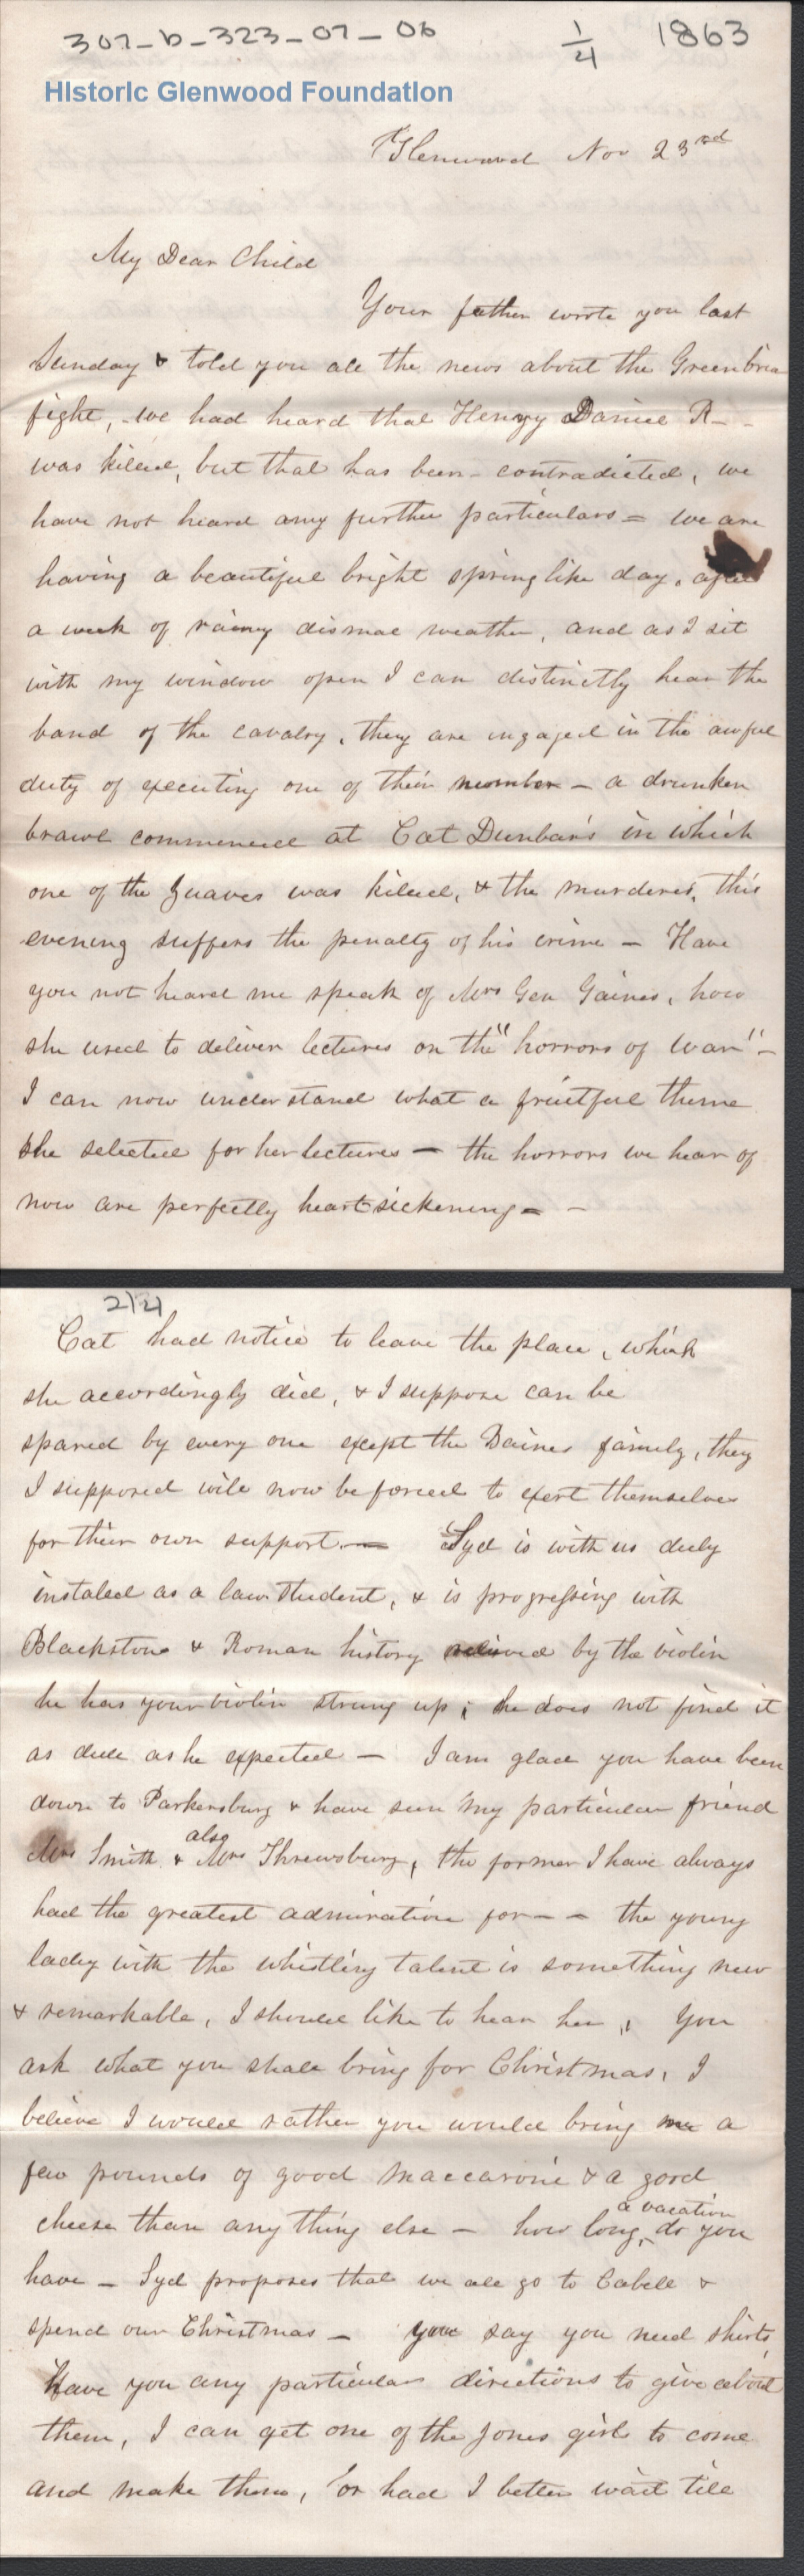 307-b-323-07-06
1/4 1863
Historic Glenwood Foundation
Glenwood Nov 23rd
My Dear Child
Your father wrote you last
Sunday & told you all the news about the Greenbria
fight, - we had heard that Henry Daniel R - -
was killed, but that has been - contradicted, we
have not heard any further particulars = we are
having a beautiful bright spring like day, after
a week of rainy dismal weather, and as I sit
with my window open I can distinctly hear the
band of the cavalry, they are engaged in the awful
duty of executing one of their number - a drunken
brawl commenced at Cat Dunbar's in which
one of the Zuaves was killed, & the murderer, this
evening suffers the penalty of his crime - Have
you not heard me speak of Mrs Gen Gaines, how
she used to deliver lectures on the "horrors of war" -
I can now understand what a fruitful theme
she selected for her lectures - the horrors we hear of
now are perfectly heart sickening - -
2/4
Cat had notice to leave the place, which
she accordingly did, & I suppose can be
spared by every one exept the Daines family, they
I supposed will now be forced to exert themselves
for their own support. - Syd is with us duly
instaled as a law student, & is progressing with
Blackstone & Roman history relieved by the violin
he has your violin strung up; he does not find it
as dull as he expected - I am glad you have been
down to Parkersburg & have seen my particular friend
Mrs Smith & also Mrs Shrewsbury, the former I have always
had the greatest admiration for - - the young
lady with the whistling talent is something new
& remarkable, I should like to hear her, You
ask what you shall bring for Christmas, I
believe I would rather you would bring me a
few pounds of good maccaroni & a good
cheese than any thing else - how long a vacation do you
have - Syd proposes that we all go to Cabell &
spend our Christmas - you say you need shirts,
Have you any particular directions to give about
them, I can get one of the Jones girls to come
and make them, or had I better wait till